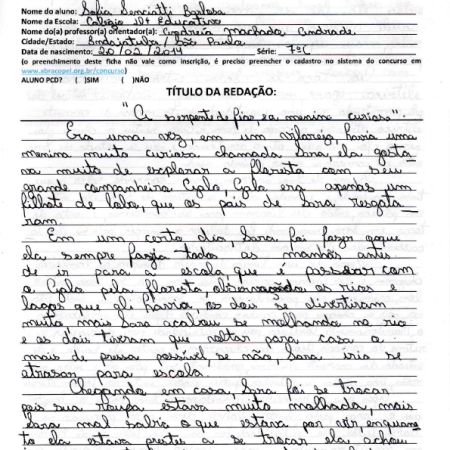 Nome do aluno: Sofia Senciatti Barbosa
Nome da Escola: Colégio JDF Educativo
Nome do(a) professor(a) orientador(a): Andréia Machado Andrade
Cidade/Estado: Indaiatuba / São Paulo
Data de nascimento: 20/02/2014 Série: 7ºC
(o preenchimento deste ficha não vale como inscrição, é preciso preencher o cadastro no sistema do concurso em
www.abracopel.org.br/concurso)
ALUNO PCD? ( )SIM ( )NÃO
TÍTULO DA REDAÇÃO:
"A serpente de fogo, e a menina curiosa".
Era uma vez, em um vilarejo, havia uma
menina muito curiosa chamada Sara, ela gosta-
va muito de explorar a floresta com seu
grande companheiro Cyclo, Cyclo era apenas um
filhote de lobo, que os pais de Sara resgata
ram.
Em um certo dia, Sara foi fazer o que
ela sempre fazia todas as manhãs antes
de ir para a escola, que é passear com
o Cyclo pela floresta, observando os rios e
lagos que ali havia, os dois se divertiram
muito, mais Sara acabou se molhando no rio
e os dois tiveram que voltar para casa o
mais de pressa possível, se não, Sara iria se
atrasar para escola.
Chegando em casa, Sara foi se trocar
pois sua roupa estava muito molhada, mais
Sara mal sabia o que estava por vir, enquan
to ela estava prestes a se trocar ela achou